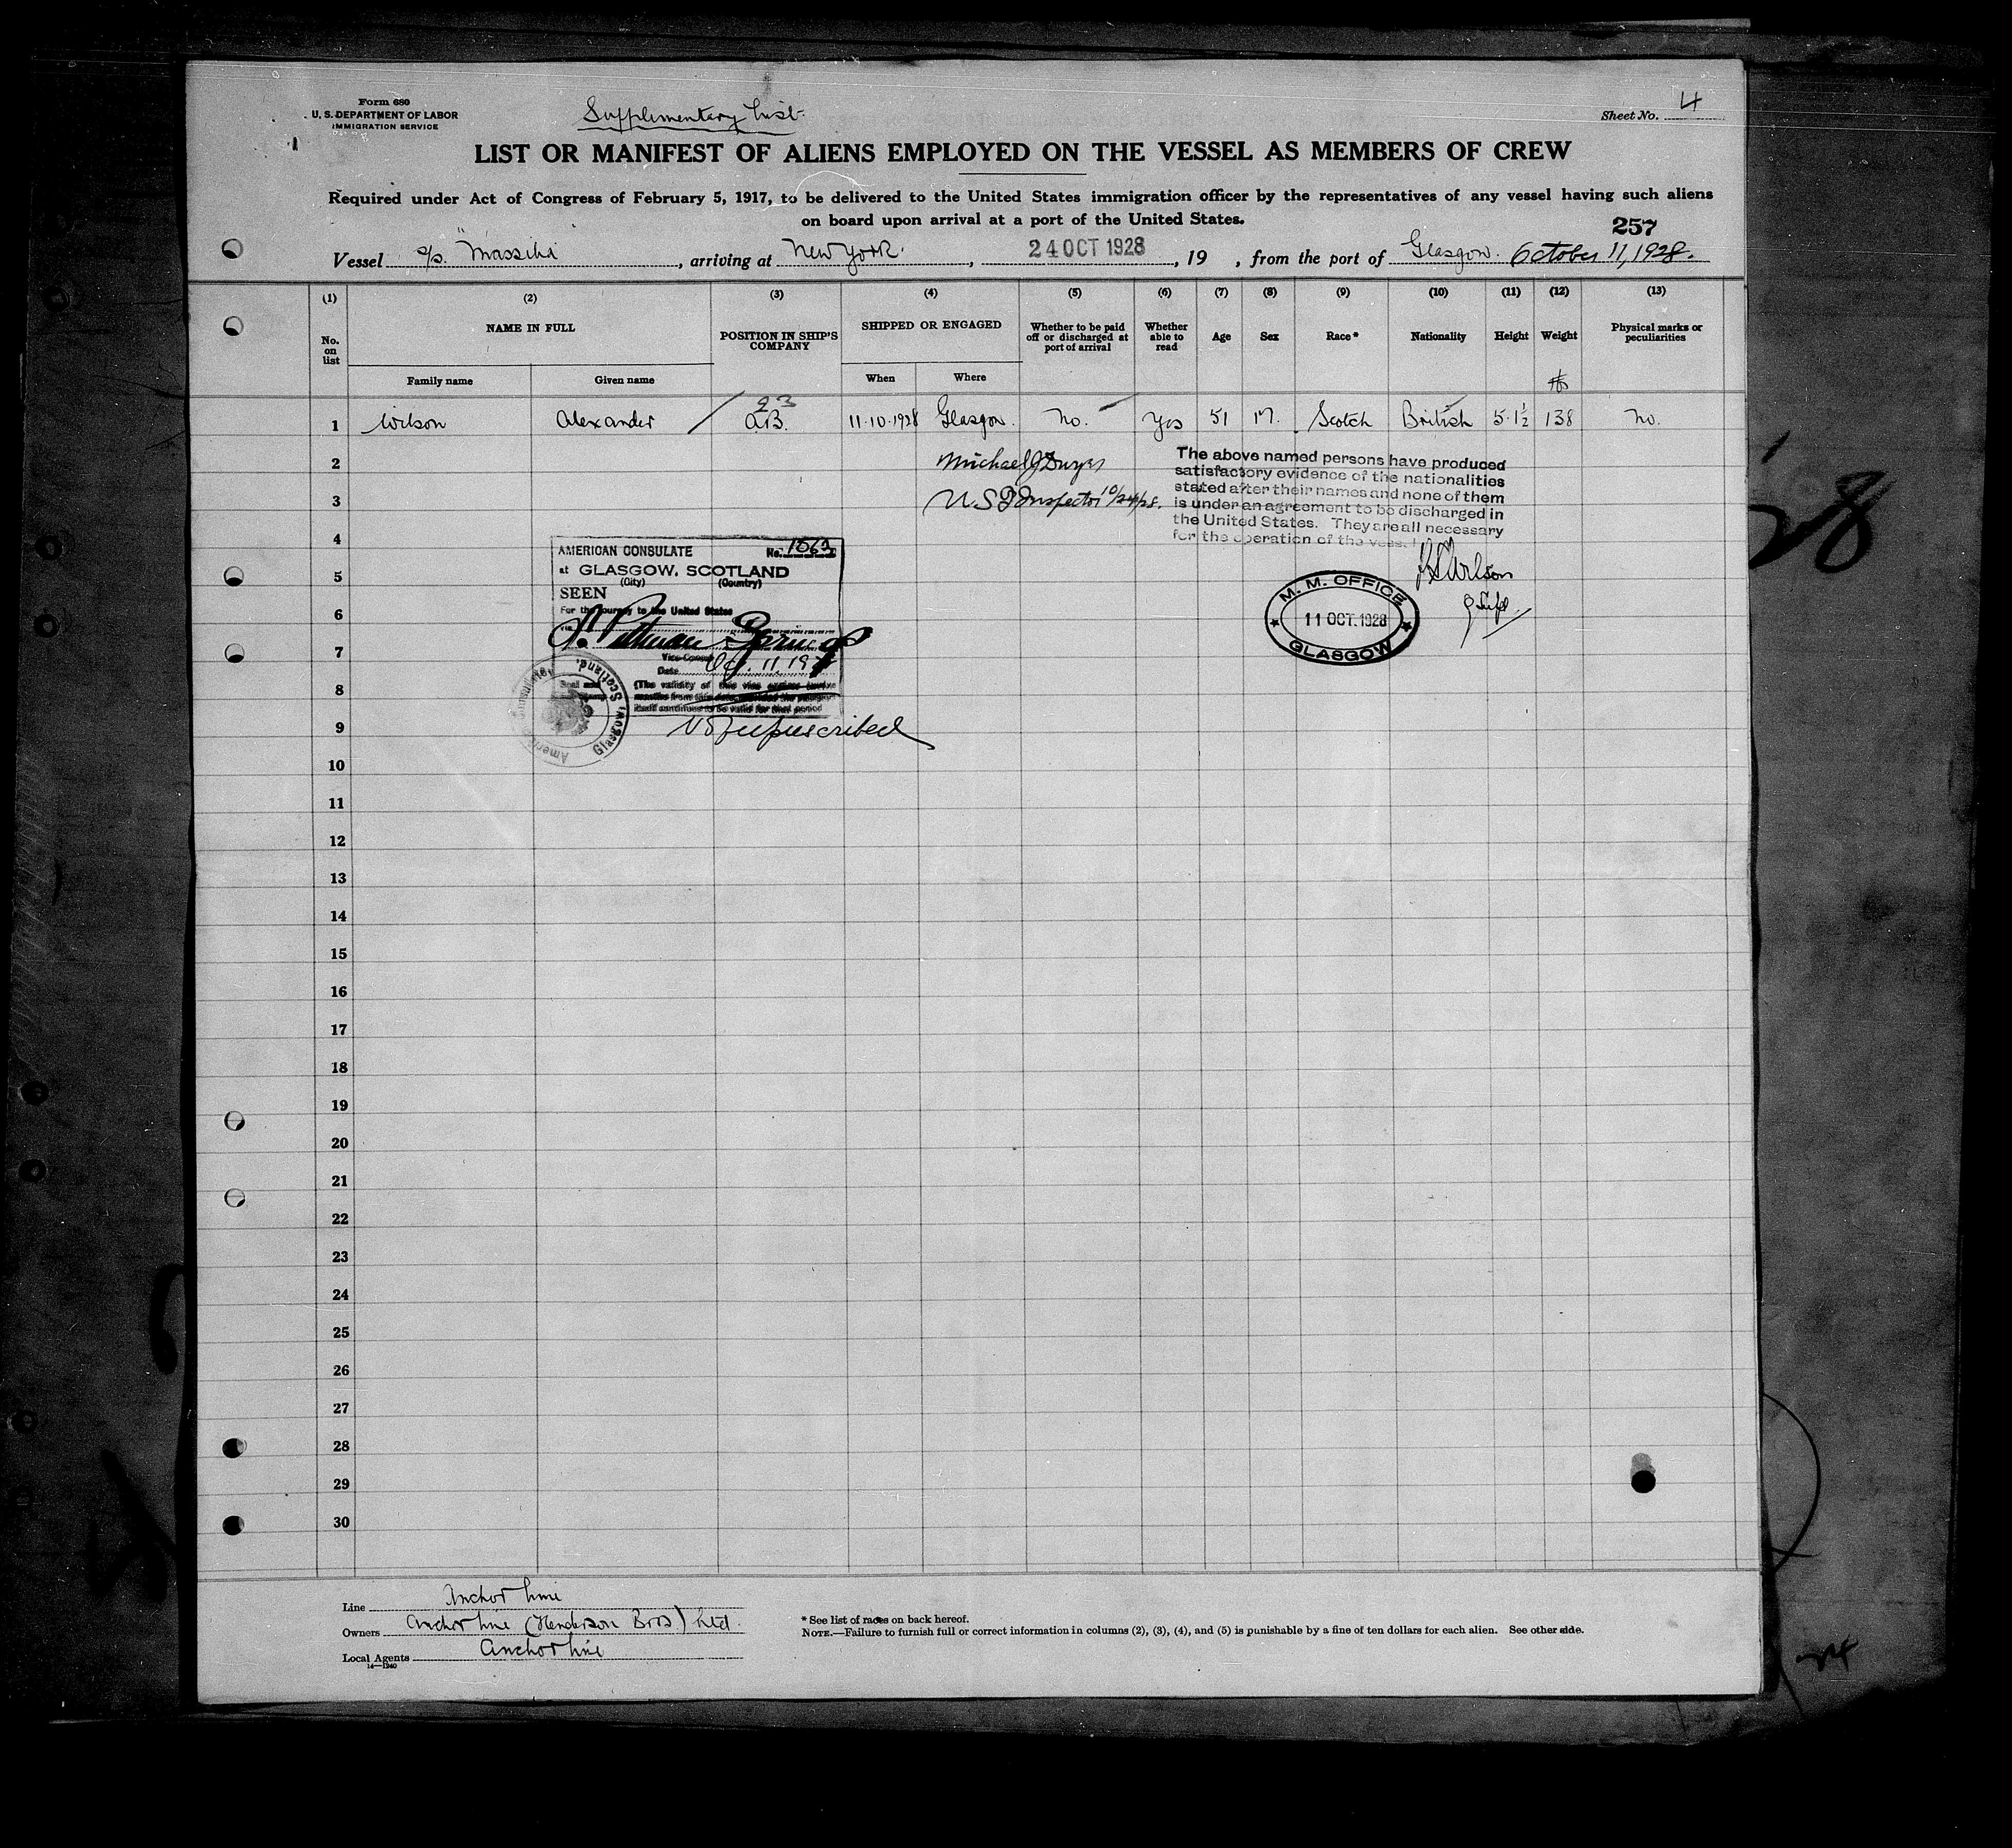 Form 680
U. S. DEPARTMENT OF LABOR
IMMIGRATION SERVICE
Supplementary List.
Sheet No. 4
LIST OR MANIFEST OF ALIENS EMPLOYED ON THE VESSEL AS MEMBERS OF CREW
Required under Act of Congress of February 5, 1917, to be delivered to the United States immigration officer by the representatives of any vessel having such aliens
on board upon arrival at a port of the United States.
257
Vessel s/s. "Massilia", arriving at New York., 24 OCT 1928, 19 , from the port of Glasgow. October 11, 1928.
(1) (2) (3) (4) (5) (6) (7) (8) (9) (10) (11) (12) (13)
No. on list NAME IN FULL POSITION IN SHIP'S COMPANY SHIPPED OR ENGAGED Whether to be paid off or discharged at port of arrival Whether able to read Age Sex Race* Nationality Height Weight Physical marks or peculiarities
Family name Given name When Where
23
1 Wilson Alexander A.B. 11-10-1928 Glasgow. No. Yes 51 M. Scotch British 5-1½ 138 No.
2 Michael J
3 U.S. Inspector 10/24/28.
The above named persons have produced
satisfactory evidence of the nationalities
stated after their names and none of them
is under an agreement to be discharged in
the United States. They are all necessary
for the operation of the
4
AMERICAN CONSULATE No. 1563
at GLASGOW, SCOTLAND
(City) (Country)
5
SEEN
For the journey to the United States
6
M. M. OFFICE
11 OCT. 1928
GLASGOW
7
Vice Consul
Date Oct. 11 19
(The validity of this visa
8
itself continues to be valid for that period
9
10
11
12
13
14
15
16
17
18
19
20
21
22
23
24
25
26
27
28
29
30
Line Anchor Line
Owners Anchor Line (Henderson Bros) Ltd.
Local Agents Anchor Line
14—1240
* See list of races on back hereof.
NOTE.—Failure to furnish full or correct information in columns (2), (3), (4), and (5) is punishable by a fine of ten dollars for each alien. See other side.